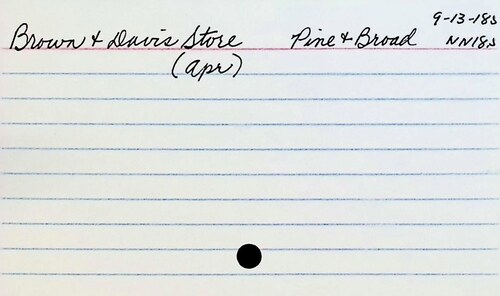 9-13-18s
Brown & Davis Store Pine & Broad NN18s
(apr)